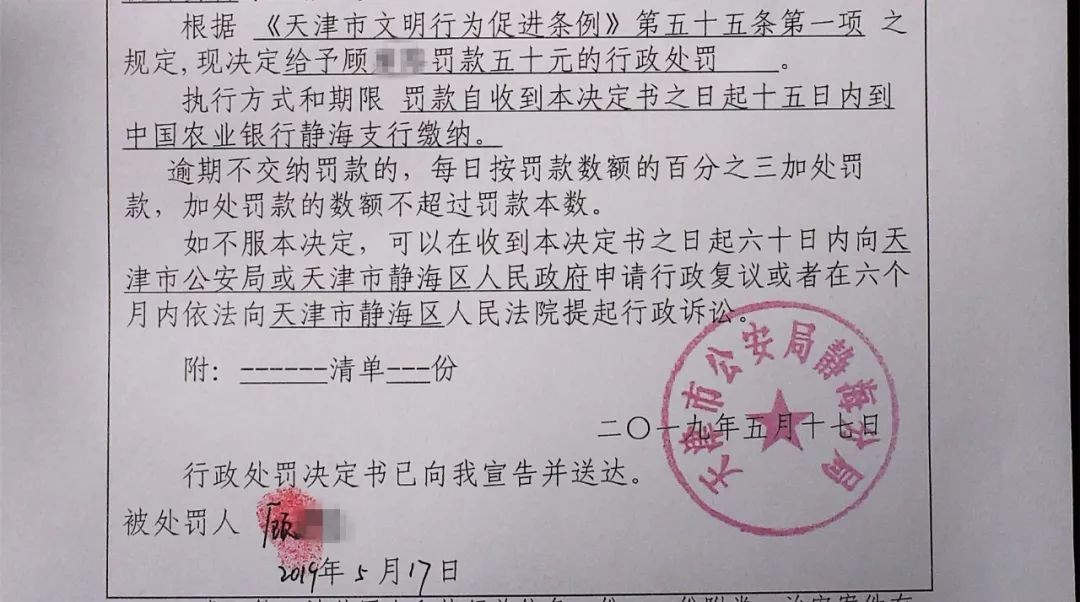 根据 《天津市文明行为促进条例》第五十五条第一项 之
规定,现决定给予顾 罚款五十元的行政处罚 。
执行方式和期限 罚款自收到本决定书之日起十五日内到
中国农业银行静海支行缴纳。
逾期不交纳罚款的，每日按罚款数额的百分之三加处罚
款，加处罚款的数额不超过罚款本数。
如不服本决定，可以在收到本决定书之日起六十日内向天
津市公安局或天津市静海区人民政府申请行政复议或者在六个
月内依法向天津市静海区人民法院提起行政诉讼。
附：------清单---份
天津市公安局静海分局
二〇一九年五月十七日
行政处罚决定书已向我宣告并送达。
被处罚人 顾
2019年 5 月 17 日